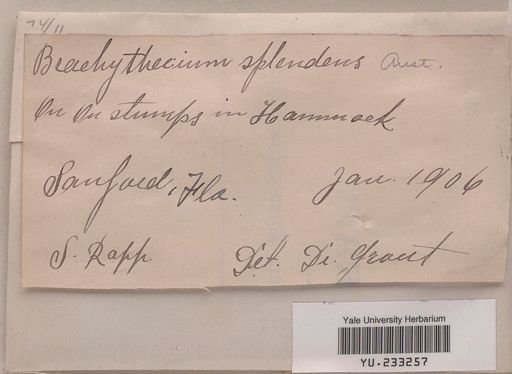 74/11
Brachythecium splendens Aust.
On On stumps in Hammock
Sanford, Fla. Jan. 1906
S. Rapp Det. Dr. Grout
Yale University Herbarium
YU.233257